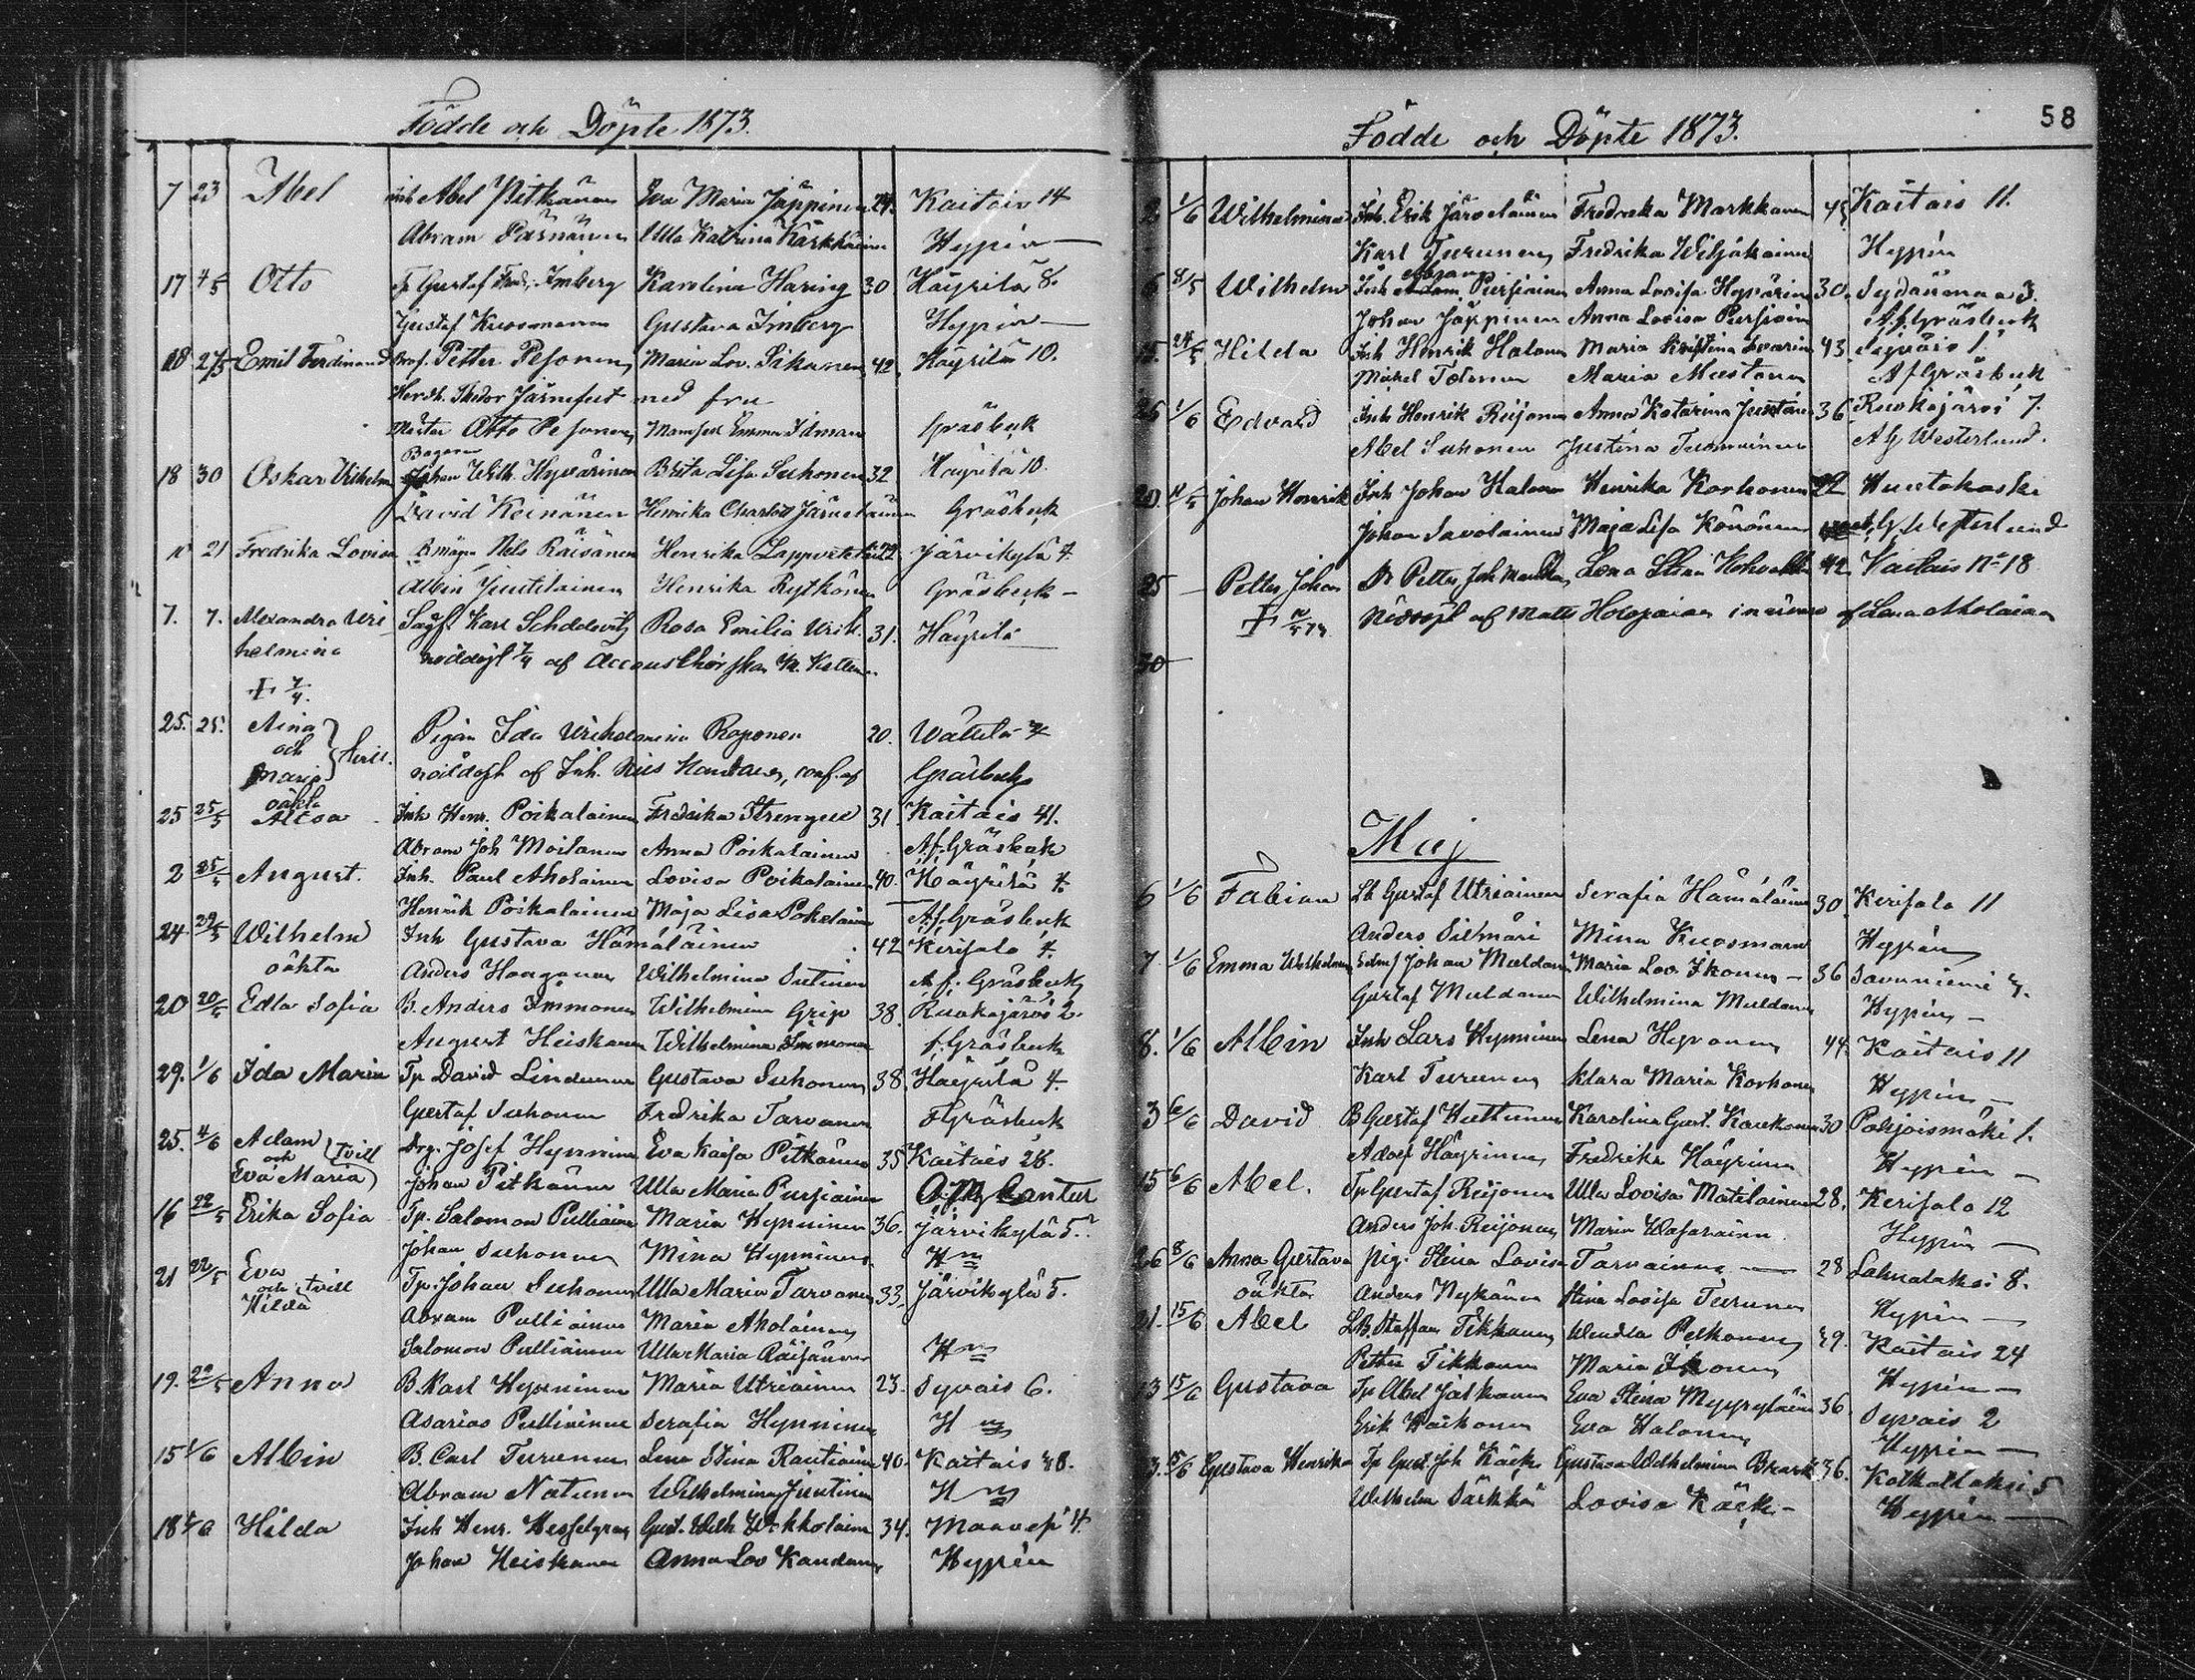 Födde och Döpte 1873.
7 23 Abel Inh Abel Pitkänen Eva Maria Jäppinen 24. Kaitais 14
Abram Pärnänen Ulla Katrina Kärkkäinen Hypén
17 4/5 Otto Gustaf Fredr. Imberg Karolina Haring 30 Häyrilä 8.
Gustaf Kuosmanen Gustava Imberg Hypén
18 2/5 Emil Ferdinand Prof. Petter Pesonen Maria Lov. Sikanen 42. Häyrilä 10.
Hersh. Thedor Järnefelt med fru
Otto Pesonen Mamsell Emma Idman Gråsbeck
Bagaren
18 30 Oskar Wilhelm Johan Wilh. Hyvärinen Brita Lisa Suhonen 32 Häyrilä 10.
David Keinänen Henrika Charlott Järvelainen Gråsbeck
10 21 Fredrika Lovisa Bmågen Nils Räisänen Henrika 22. Järvikylä 4
Albin Juutilainen Henrika Rytkönen Gråsbeck
7. 7. Alexandra Wil- Karl Rosa Emilia 31. Häyrilä
helmina nöddöpt 7/4 af
† 7/4.
25. 25. Aina Pigan Ida Wilhelmina Roponen 20. Wättilä 4
och tvill.
Maria nöddöpt af Inh. Nils conf. af Gråsbeck
oäkta
25 25/5 Inh Henr. Poikalainen Fredrika Strengell 31. Kaitais 41.
Abram Joh Moilanen Anna Poikalainen Af. Gråsbeck
2 25/5 August. Inh. Paul Aholainen Lovisa Poikalainen 40. Häyrilä 4
Henrik Poikalainen Maja Lisa Pokelainen Af. Gråsbeck
24 29/5 Wilhelm Inh Gustava Hämäläinen 42 Kerisalo 4.
oäkta Anders Wilhelmina Sutinen Af. Gråsbeck
20 20/5 Edla Sofia B. Anders Immonen Wilhelmina Grip 38. Ruokojärvi 2.
August Heiskanen Wilhelmina Immonen f. Gråsbeck
29. 1/6 Ida Maria Tp David Gustava Suhonen 38. Häyrilä 4
Gustaf Suhonen Fredrika Tarvanen F Gråsbeck
25. 4/6 Adam Drg. Josef Hynninen Eva Kaisa Pitkänen 35 Kaitais 28.
och tvill
Eva Maria Johan Pitkänen Ulla Maria Pursiainen
16 22/5 Erika Sofia Tp. Salomon Pulliainen Maria Hynninen 36. Järvikylä 5.
Johan Suhonen Mina Hynninen H n
21 22/5 Eva Tp. Johan Suhonen Ulla Maria Tarvanen 33. Järvikylä 5.
och tvill
Hilda
Abram Pulliainen Maria Aholainen
Salomon Pulliainen Ulla Maria Räisänen H n
19. 22/5 Anna B. Karl Hynninen Maria Utriainen 23. Syväis 6.
Asarias Pulliainen Serafia Hynninen H n
15 1/6 Albin B. Carl Turunen Lena Stina Rautiainen 40. Kaitais 48.
Abram Natunen Wilhelmina Juutinen H n
18 1/6 Hilda Inh Henr. Hesselgren Gust. Wilh. 34. Maavesi 4.
Johan Heiskanen Anna Lov Hypén
58
Födde och Döpte 1873.
2 1/6 Wilhelmina Inh. Erik Järveläinen Fredrika Markkanen 45 Kaitais 11.
Karl Turunen Fredrika Wiljakainen Hypén
Abram
6 8/5 Wilhelm Inh Pursiainen Anna Lovisa Hyvärinen 30. Sydänmaa 3.
Johan Jäppinen Anna Lovisa Pursiainen Af. Gråsbeck
15. 24/5 Hilda Inh Henrik Halonen Maria Kristina 43. Syväis 1.
Mickel Tolonen Maria Mustonen Af Gråsbeck
26 1/6 Edvard Inh Henrik Reijonen Anna Katarina 36 Ruokojärvi 7.
Abel Suhonen Justina Tuomainen Af Westerlund.
20. 11/5 Johan Henrik Inh Johan Halonen Henrika Korhonen 22 Huutokoski
Johan Savolainen Maja Lisa Könönen Westerlund
25 Petter Johan Petter Joh Lena Stina 42. Kaitais No 18
† nöddöpt af Matts Holopainen i närvaro af Lena Aholainen
30
Maj
6 1/6 Fabian Lb Gustaf Utriainen Serafia Hämäläinen 30. Kerisalo 11
Anders Siltmäri Mina Kuosmanen Hypén
7 1/6 Emma Wilhelmina Johan Muldanen Maria Lov. Ikonen 36 Savuniemi 7.
Gustaf Muldanen Wilhelmina Muldanen Hypén
8. 1/6 Albin Inh Lars Hynninen Lena Hyvonen 44. Kaitais 11
Karl Turunen Klara Maria Korhonen Hypén
3 6/6 David B Gustaf Kuttunen Karolina Gust. Kaukonen 30 Pohjoismäki 1.
Adolf Häyrinen Fredrika Häyrinen Hypén
15 6/6 Abel. Tp Gustaf Reijonen Ulla Lovisa Matilainen 28. Kerisalo 12
Anders Joh. Reijonen Maria Hypén
26 8/6 Anna Gustava pig. Stina Lovisa Tarvainen 28 Lahnalaksi 8.
oäkta Anders Nykänen Stina Lovisa Turunen Hypén
21. 15/6 Abel LB Staffan Tikkanen Wendla Pelkonen 29. Kaitais 24
Petter Tikkanen Maria Ikonen Hypén
23 15/6 Gustava Tp Abel Jalkanen Eva Stina Myyryläinen 36. Syväis 2
Erik Eva Halonen Hypén
3. 15/6 Gustava Henrika Tp Gust. Joh Käck Gustava Wilhelmina 36. 5
Wilhelm Särkkä Lovisa Käck Hypén